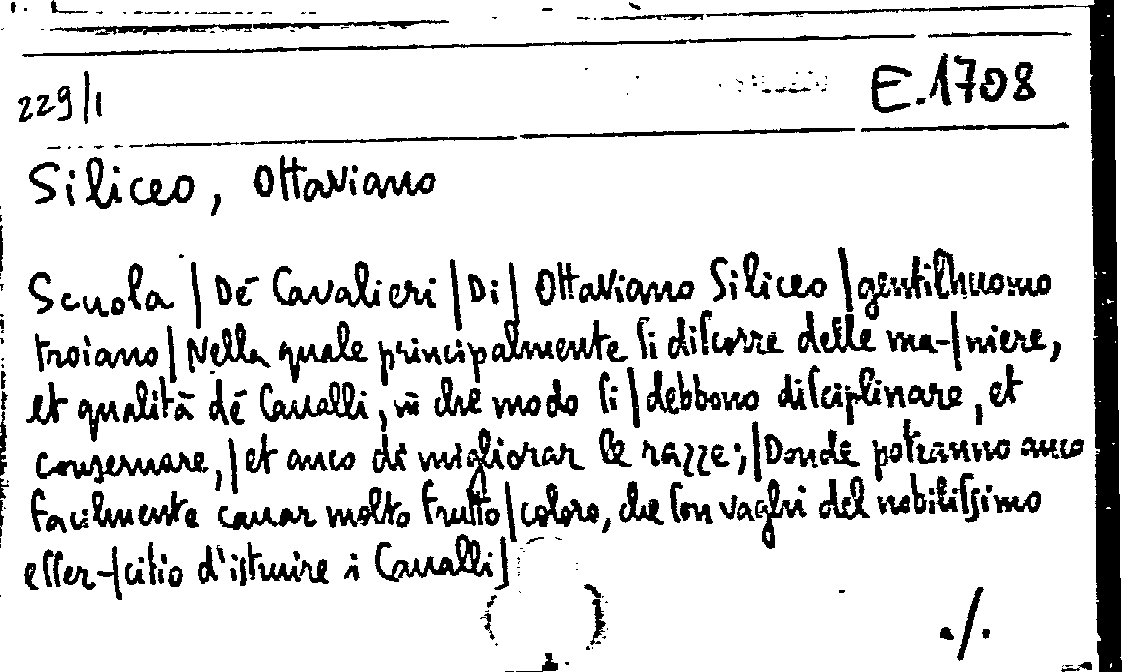 229/1 E.1708
Siliceo, Ottaviano
Scuola | Dé Cavalieri | Di | Ottaviano Siliceo | gentilhuomo
troiano | Nella quale principalmente ſi diſcorre delle ma-|niere,
et qualità dé Caualli, in che modo ſi | debbono diſciplinare, et
conseruare, | et anco di migliorar le razze; | Donde potranno anco
facilmente cauar molto frutto | coloro, che ſon vaghi del nobiliſſimo
eſſer-|citio d'istruire i Caualli|
./.